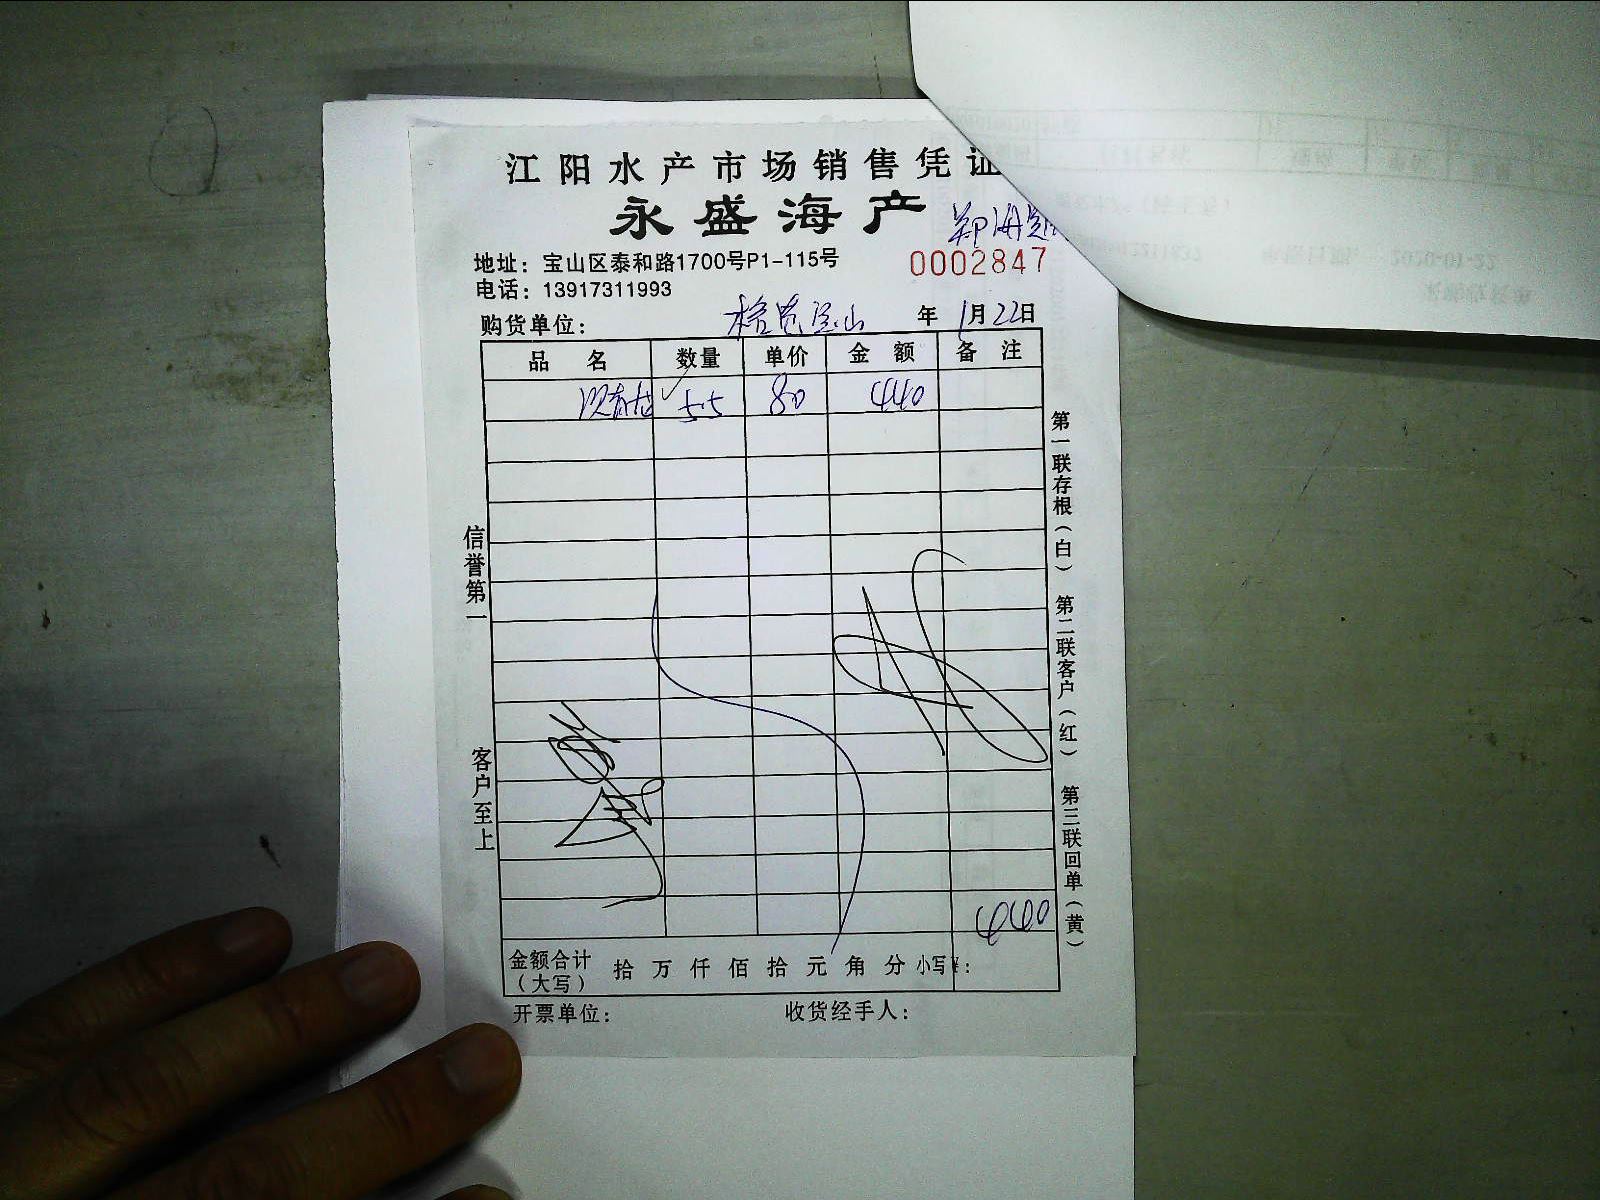 江阳水产市场销售凭证
永盛海产
郑海
地址：宝山区泰和路1700号P1-115号
0002847
电话：13917311993
购货单位： 宝山 年 1月22日
品名 数量 单价 金额 备注
5.5 80 440
信誉第一
客户至上
第一联存根（白） 第二联客户（红） 第三联回单（黄）
440
金额合计（大写） 拾 万 仟 佰 拾 元 角 分 小写¥：
开票单位： 收货经手人：
2020-01-22